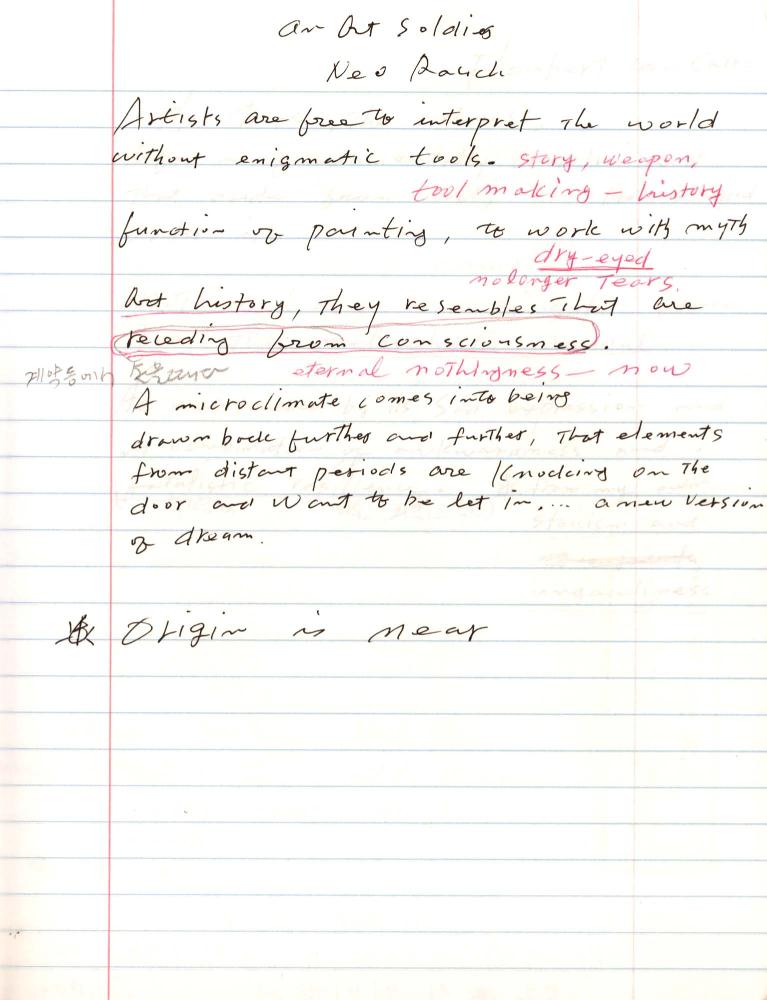 An Art Soldier
Neo Rauch
Artists are free to interpret the world
without enigmatic tools. story, weapon,
tool making – history
function of painting, to work with myth
dry-eyed
no longer Tears.
Art history, they resembles That are
receding from consciousness.
계약등에서 손을떼다
eternal nothingness – now
A microclimate comes into being
drawn back further and further, That elements
from distant periods are knocking on The
door and want to be let in,... a new version
of dream.
Origin is near